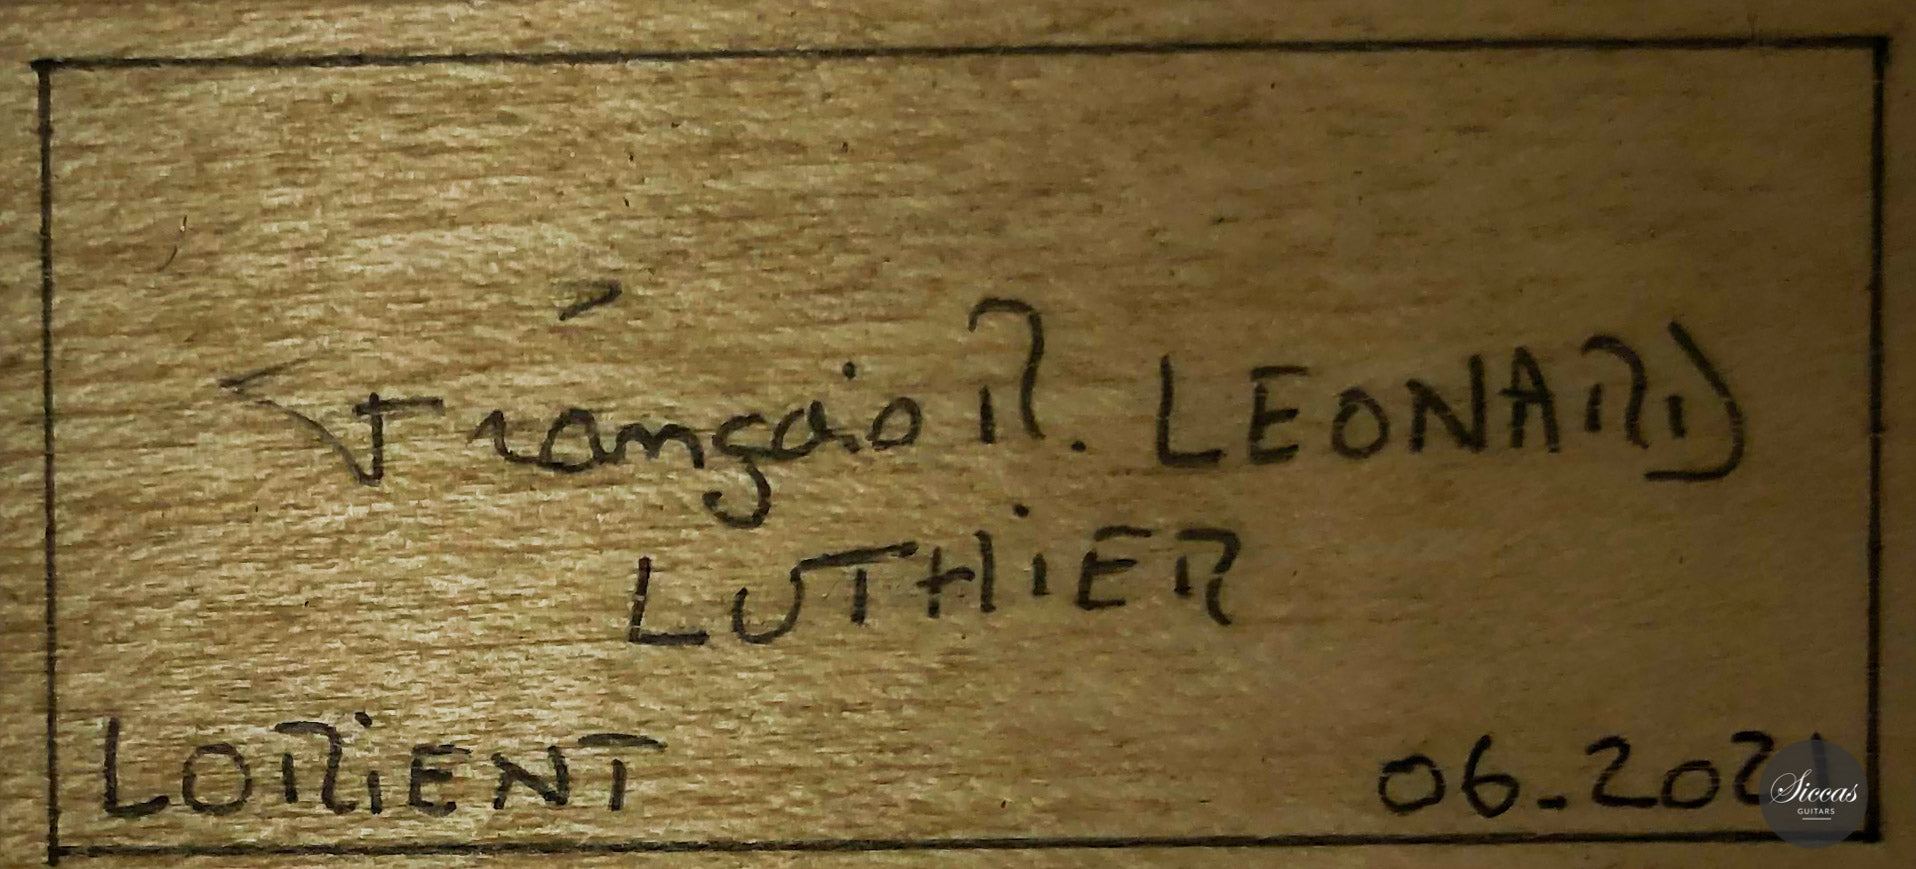 François R. LEONARD
LUTHiER
LORiENT
06.2021
Siccas
GUITARS